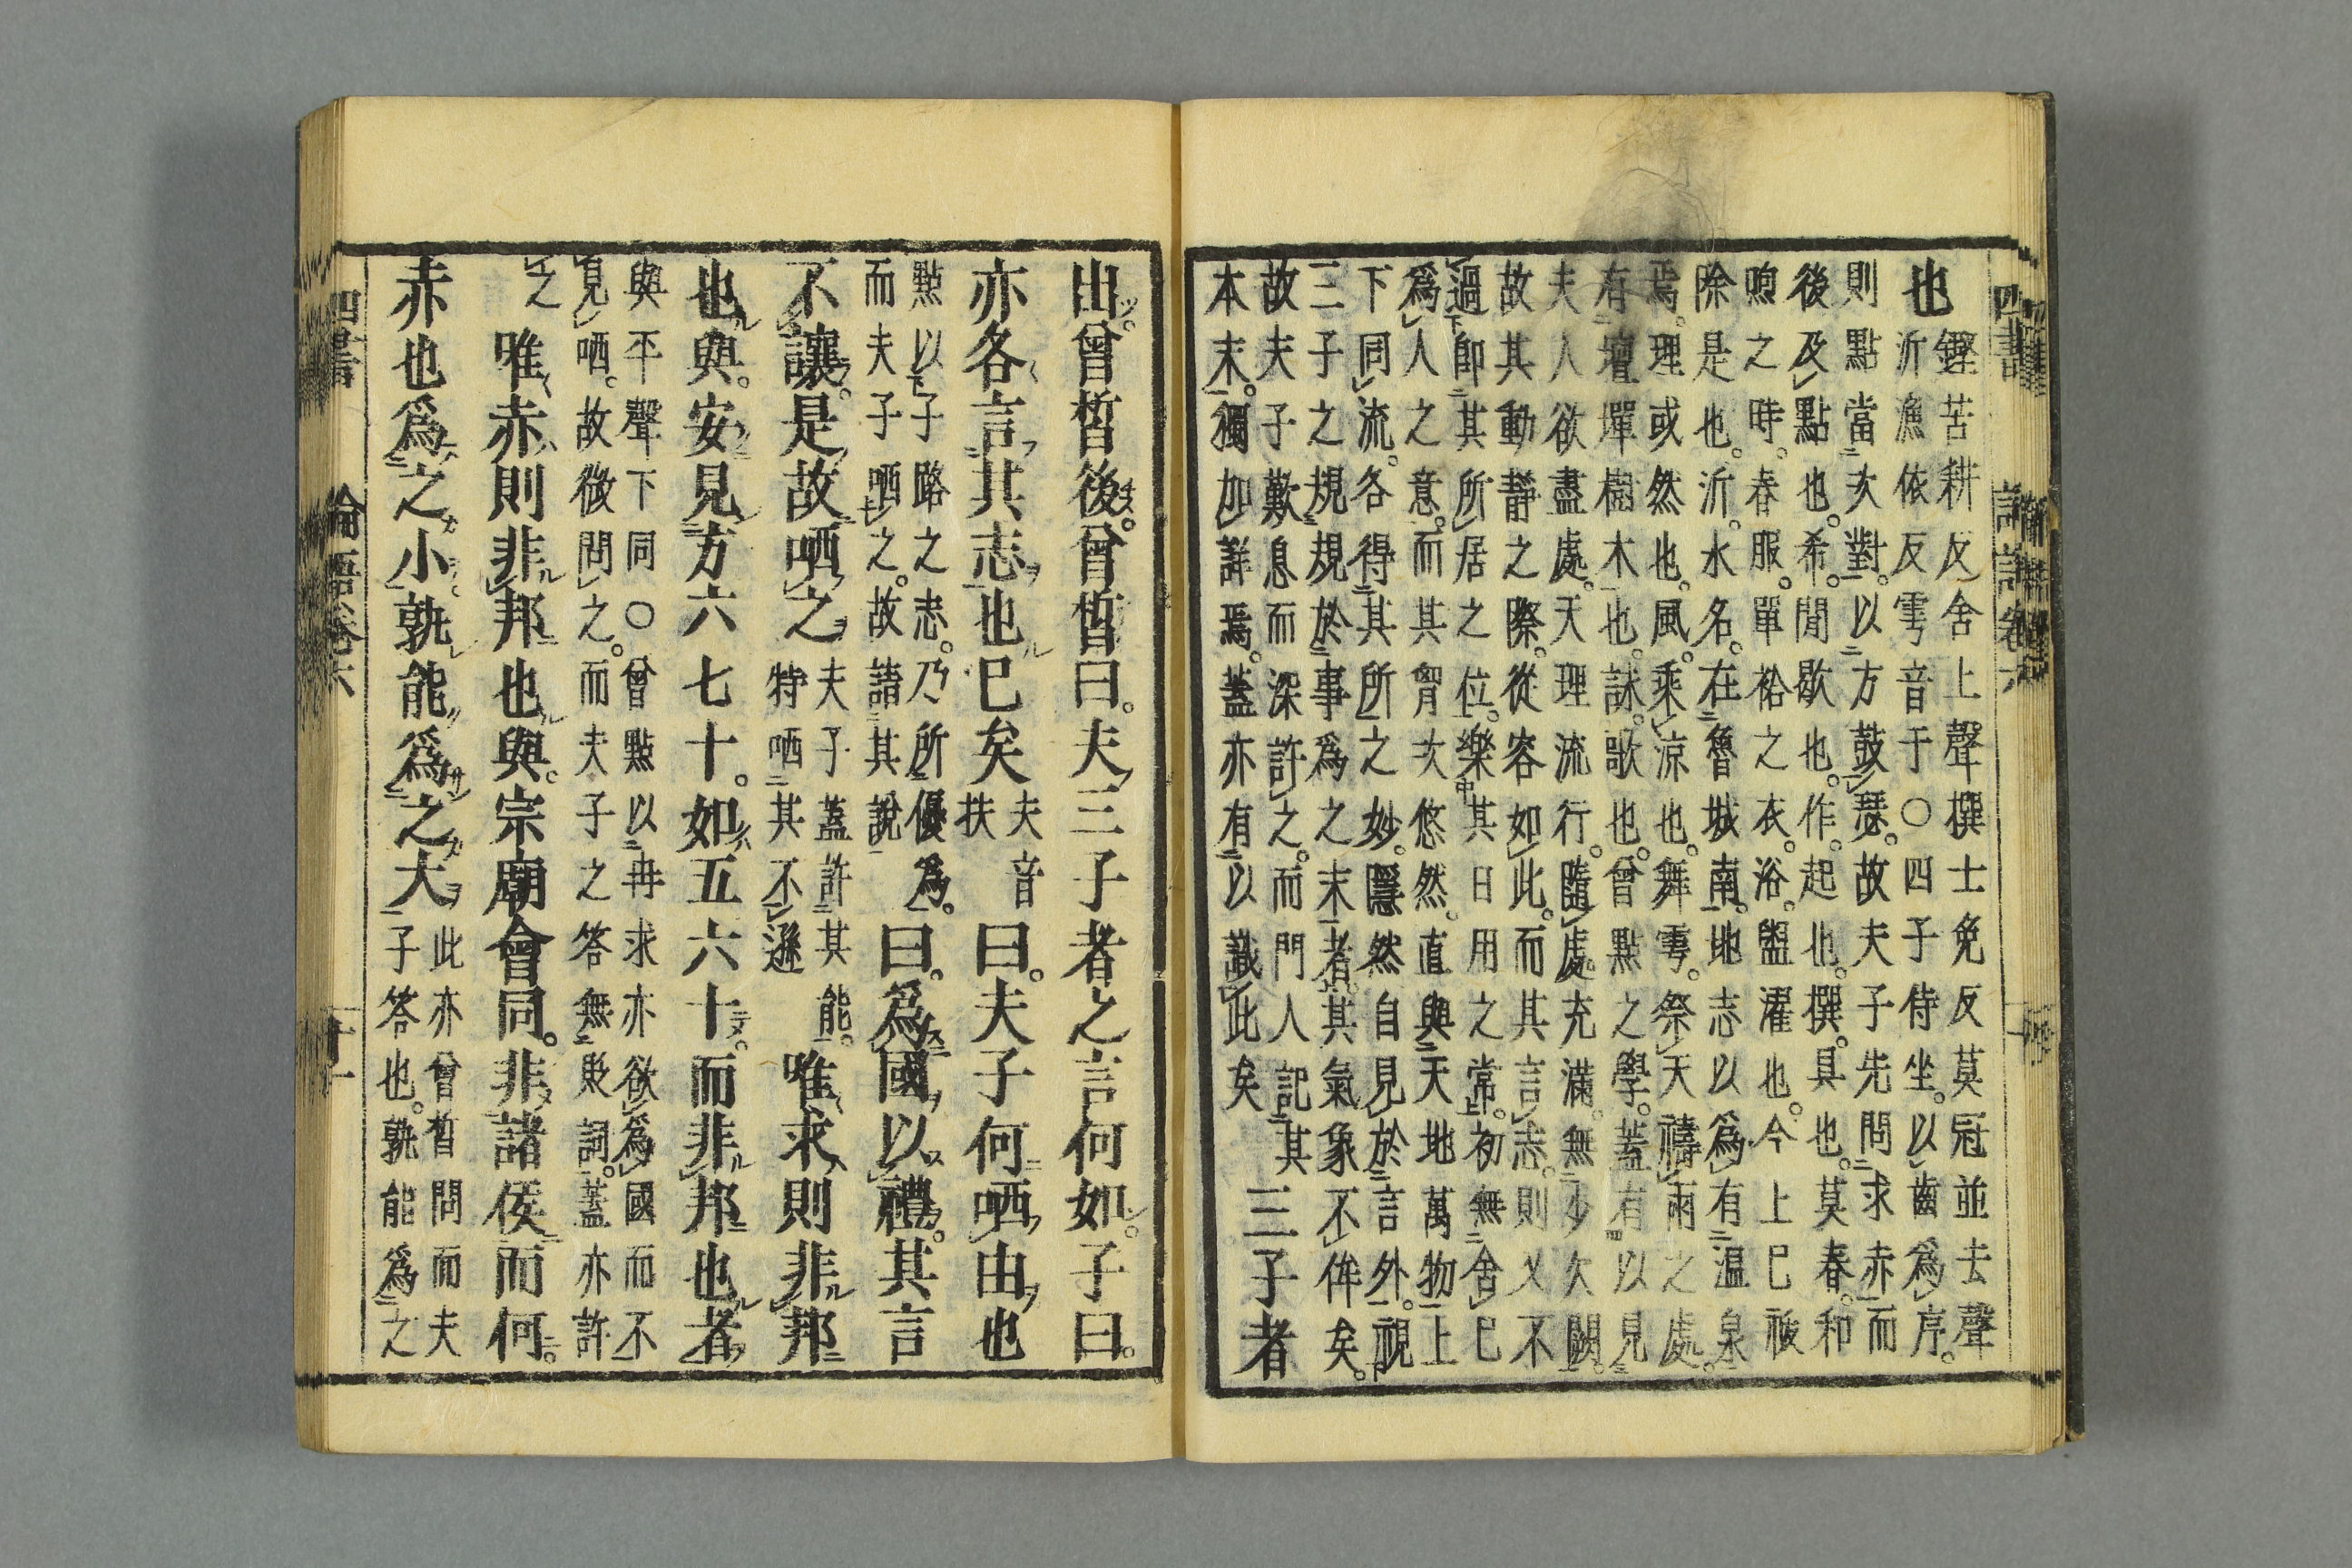 四書 論語卷六
也
鏗苦耕反舍上聲撰士免反莫冠並去聲
沂漁依反雩音于○四子侍坐。以齒爲序。
則點當次對。以方鼓瑟。故夫子先問求赤而
後及點也。希。間歇也。作。起也。撰。具也。莫春。和
煦之時。春服。單袷之衣。浴。盥濯也。今上巳祓
除是也。沂。水名。在魯城南。地志以爲有溫泉
焉。理或然也。風。乘涼也。舞雩。祭天禱雨之處。
有壇墠樹木也。詠。歌也。曾點之學。蓋有以見
夫人欲盡處。天理流行。隨處充滿。無少欠闕。
故其動靜之際。從容如此。而其言志。則又不
過卽其所居之位。樂其日用之常。初無舍已
爲人之意。而其胷次悠然。直與天地萬物上
下同流。各得其所之妙。隱然自見於言外。視
三子之規規於事爲之末者。其氣象不侔矣。
故夫子歎息而深許之。而門人記其
本末。獨加詳焉。蓋亦有以識此矣
三子者
出。曾晳後。曾晳曰。夫三子者之言何如。子曰。
亦各言其志也已矣
夫音
扶
曰。夫子何哂由也
點以子路之志。乃所優爲。
而夫子哂之。故請其說
曰。爲國以禮。其言
不讓。是故哂之
夫子蓋許其能。
特哂其不遜
唯求則非邦
也與。安見方六七十。如五六十。而非邦也者
與平聲下同○曾點以冉求亦欲爲國而不
見哂。故微問之。而夫子之答無貶詞。蓋亦許
之
唯赤則非邦也與。宗廟會同。非諸侯而何。
赤也爲之小。孰能爲之大
此亦曾晳問而夫
子答也。孰能爲之
四書 論語卷六 十一